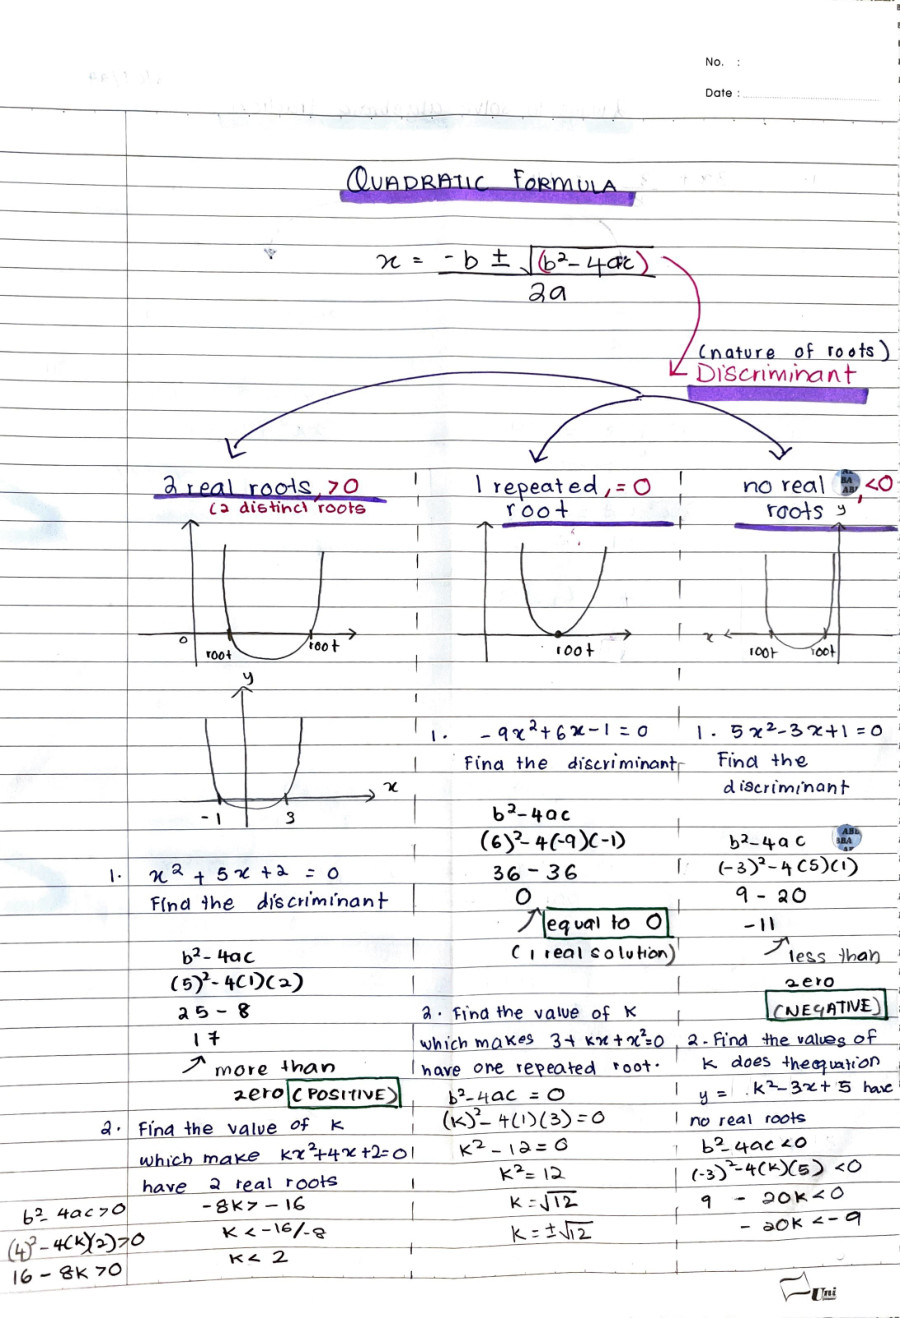 No. :
Date :
QUADRATIC FORMULA
x = -b ± √(b²-4ac)
2a
(nature of roots)
Discriminant
2 real roots, >0
(2 distinct roots
0
root
root
y
x
-1
3
1. x² + 5x + 2 = 0
Find the discriminant
b²-4ac
(5)²-4(1)(2)
25 - 8
17
more than
zero (POSITIVE)
2. Find the value of k
which make kx²+4x+2=0
have 2 real roots
b²-4ac>0
(4)²-4(k)(2)>0
16-8k>0
-8k>-16
k<-16/-8
k<2
1 repeated, =0
root
root
1. -9x²+6x-1=0
Find the discriminant
b²-4ac
(6)²-4(-9)(-1)
36-36
0
equal to 0
(1 real solution)
2. Find the value of k
which makes 3+kx+x²=0
have one repeated root.
b²-4ac=0
(k)²-4(1)(3)=0
k²-12=0
k²=12
k=√12
k=±√12
no real, <0
roots
y
x
root
root
1. 5x²-3x+1=0
Find the
discriminant
b²-4ac
(-3)²-4(5)(1)
9-20
-11
less than
zero
(NEGATIVE)
2. Find the values of
k does the equation
y = k²-3x+5 have
no real roots
b²-4ac<0
(-3)²-4(k)(5)<0
9 - 20k<0
-20k<-9
Uni